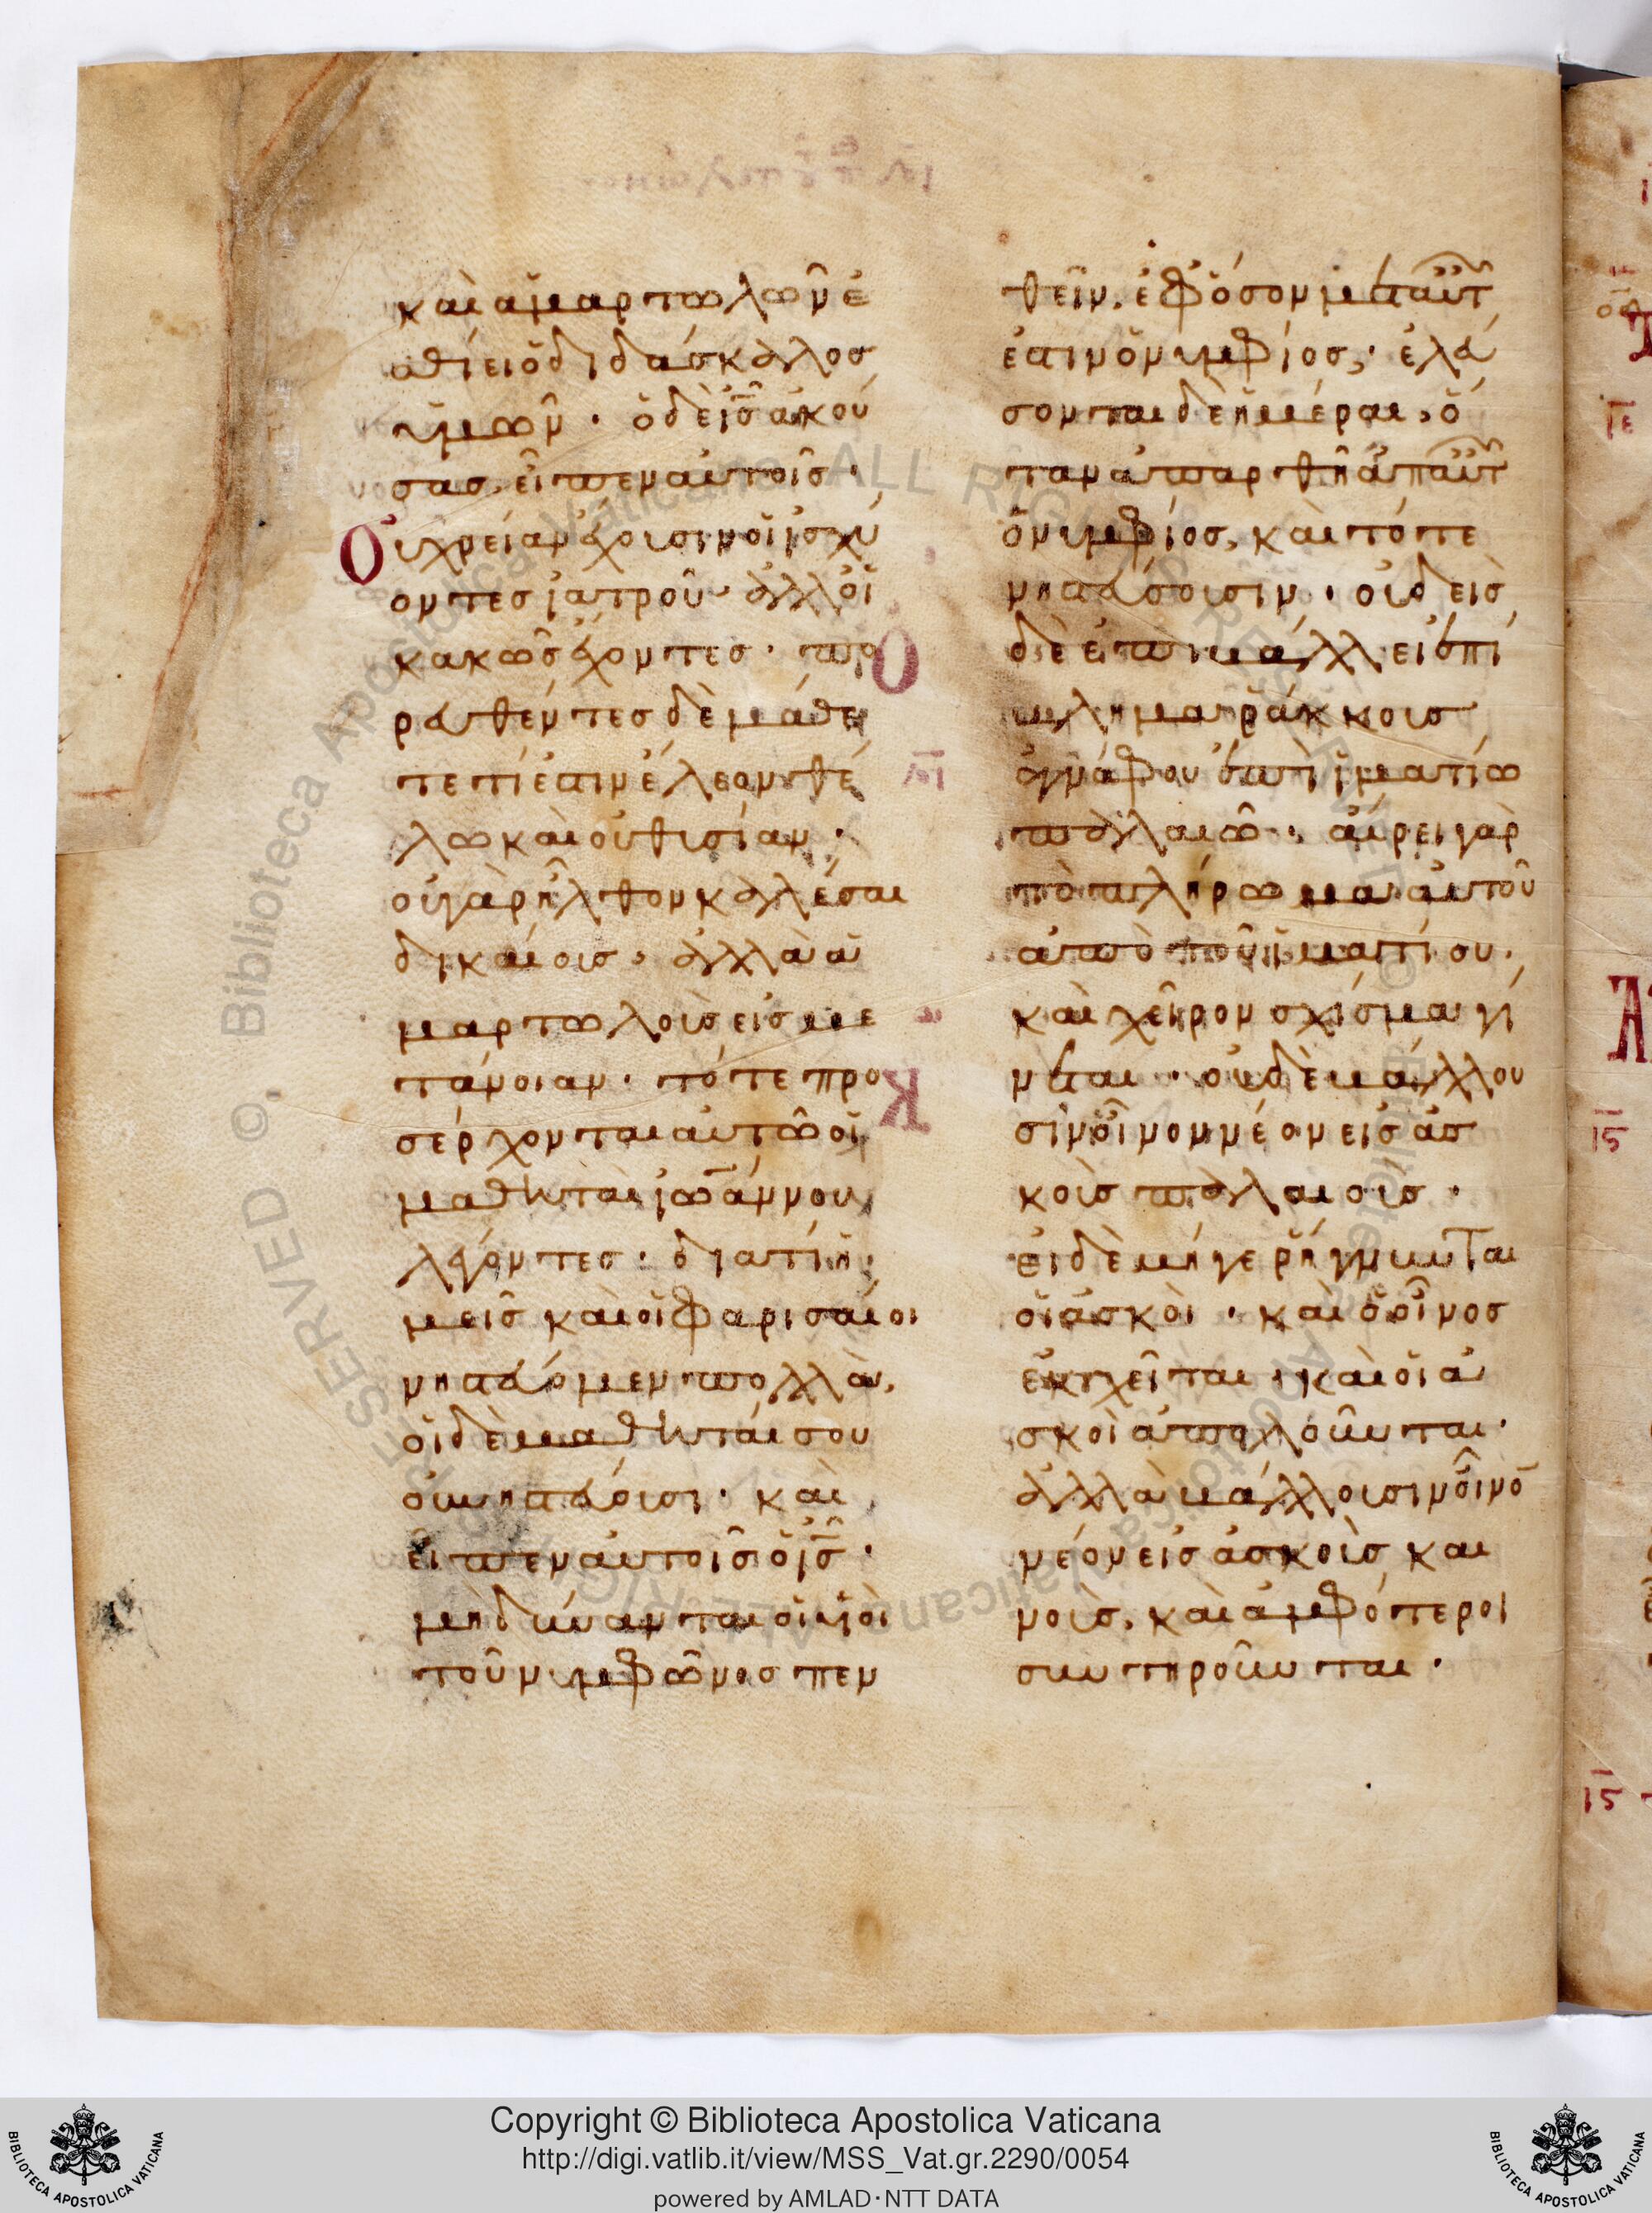 καὶ ἁμαρτωλῶν ἐ
σθίει ὁ διδάσκαλος
ὑμῶν · ὁ δὲ ις̅ ἀκού
σας, εἶπεν αὐτοῖς ·
Οὐ χρείαν ἔχουσιν οἱ ἰσχύ
οντες ἰατροῦ · ἀλλ' οἱ
κακῶς ἔχοντες · πο
ρευθέντες δὲ μάθε
τε τί ἐστιν ἔλεον θέ
λω καὶ οὐ θυσίαν ·
οὐ γὰρ ἦλθον καλέσαι
δικαίους, ἀλλὰ ἁ
μαρτωλοὺς εἰς με
τάνοιαν · τότε προ
σέρχονται αὐτῶ οἱ
μαθηταὶ ἰω̅άννου
λέγοντες · διατί ἡ
μεῖς καὶ οἱ φαρισαίοι
νηστεύομεν πολλὰ,
οἱ δὲ μαθηταί σου
οὐ νηστεύουσι · καὶ
εἶπεν αὐτοῖς ὁ ις̅ ·
μὴ δύνανται οἱ υἱοὶ
τοῦ νυμφῶνος πεν
θεῖν, ἐφ ὅσον μετ αὐτ
ἐστιν ὁ νυμφίος · ἐλεύ
σονται δὲ ἡμέραι, ὅ
ταν ἀπαρθῆ ἀπ αὐτ
ὁ νυμφίος, καὶ τότε
νηστεύσουσιν · οὐδεὶς
δὲ ἐπιβάλλει ἐπί
βλημα ῥάκκους
ἀγνάφου ἐπὶ ἱματίω
παλαιῶ · αἴρει γὰρ
τὸ πλήρωμα αὐτοῦ
ἀπὸ τοῦ ἱματίου,
καὶ χεῖρον σχίσμα γί
νεται · οὐδὲ βάλλου
σιν οἶνον νέον εἰς ἀσ
κοὺς παλαιους ·
εἰ δὲ μήγε ῥήγνυνται
οἱ ἀσκοὶ · καὶ ὁ οἶνος
ἐκχεῖται · καὶ οἱ ἀ
σκοὶ ἀπολοῦνται ·
ἀλλὰ βάλλουσιν οἶνο̅
νέον εἰς ἀσκοὺς και
νοὺς, καὶ ἀμφότεροι
συντηροῦνται ·
Copyright © Biblioteca Apostolica Vaticana
http://digi.vatlib.it/view/MSS_Vat.gr.2290/0054
powered by AMLAD·NTT DATA